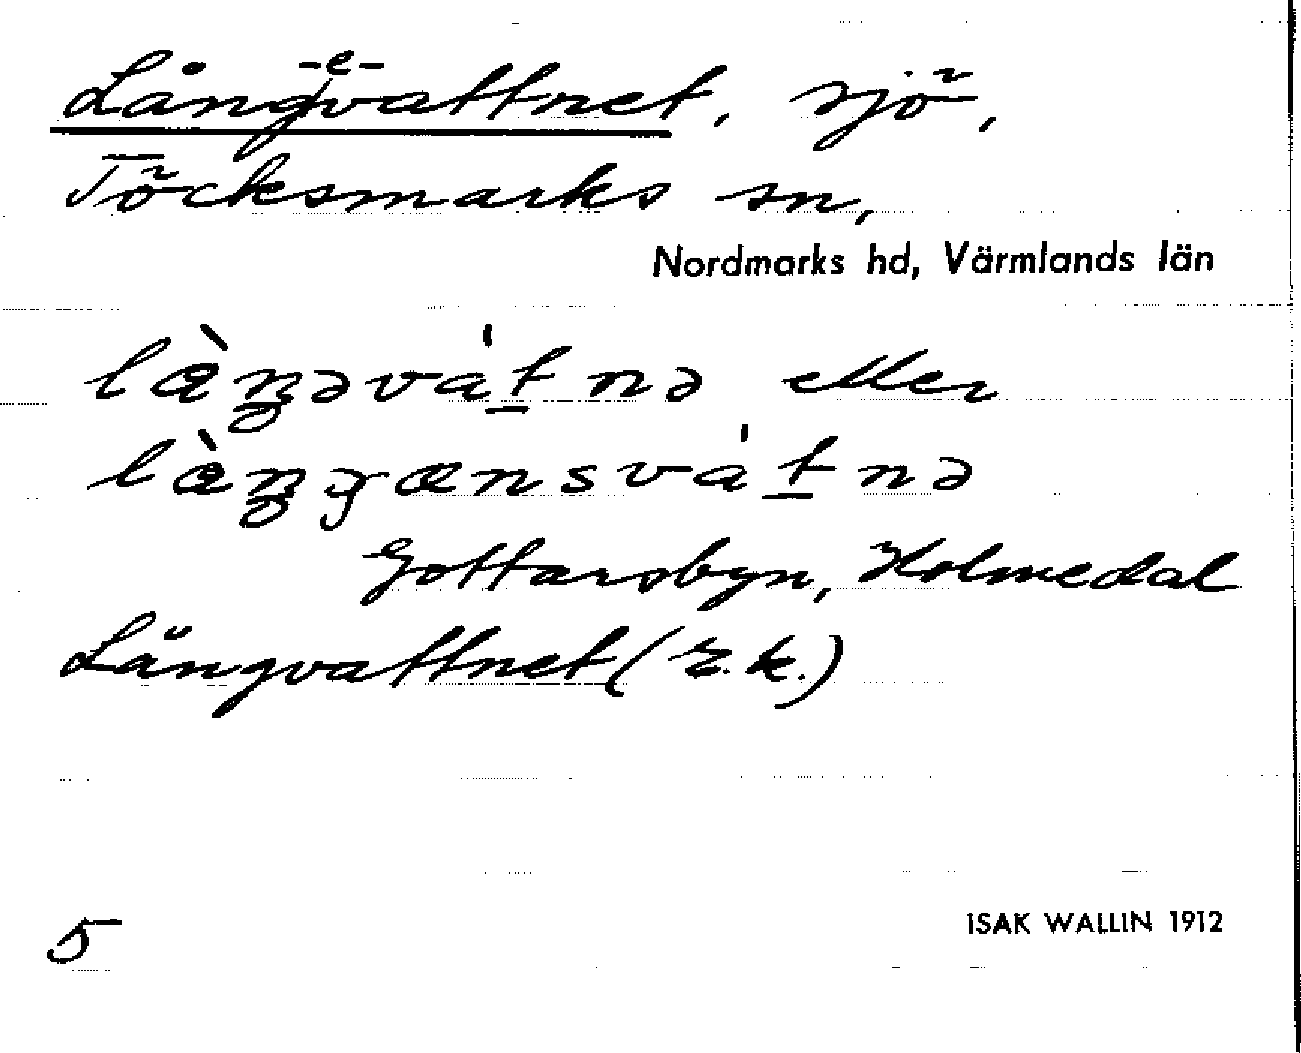 Lång-e-vattnet, sjö,
Töcksmarks sn,
Nordmarks hd, Värmlands län
là̀ŋəvát̠nə eller
læ̀ŋɣænsvát̠nə
Gottarsbyn, Holmedal
Långvattnet (E.k.)
5
ISAK WALLIN 1912